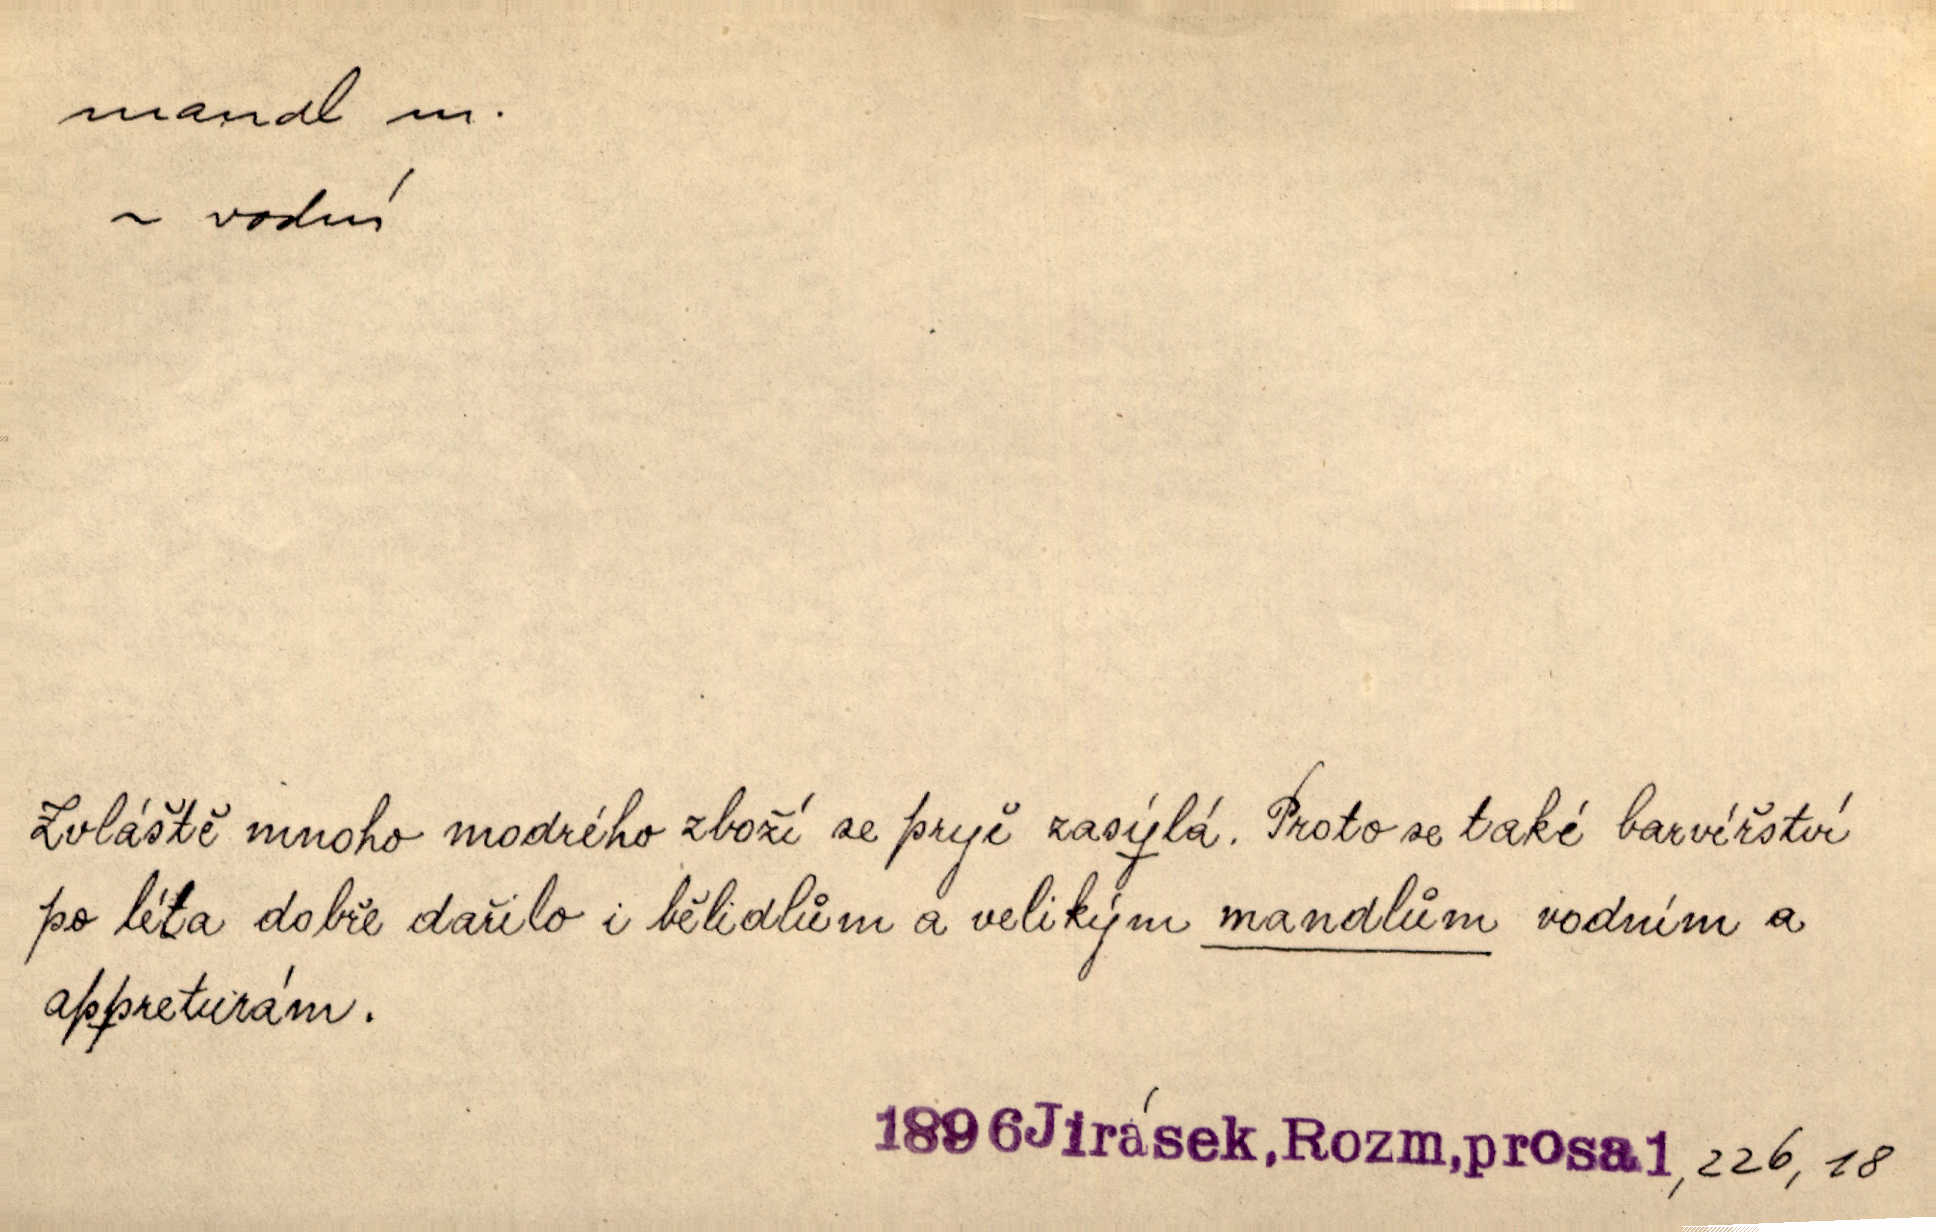 mandl m.
~ vodní
Zvláště mnoho modrého zboží se pryč zasýlá. Proto se také barvířství
po léta dobře dařilo i bělidlům a velikým mandlům vodním a
appreturám.
1896 Jirásek, Rozm, prosa 1, 226, 18